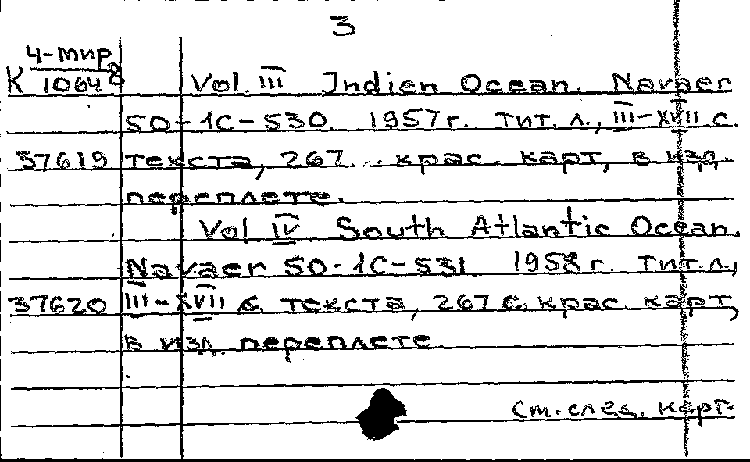 3
4-мир
К 10648 Vol. III Indien Ocean. Navaer
50-1C-530. 1957г. тит. л., III-XVII с.
37619 текста, 267 крас. карт, в изд.
переплете.
Vol IV South Atlantic Ocean.
Navaer 50-1C-531. 1958г. тит. л,
37620 III-XVII с. текста, 267 с. крас. карт,
в изд. переплете.
См. след. карт.